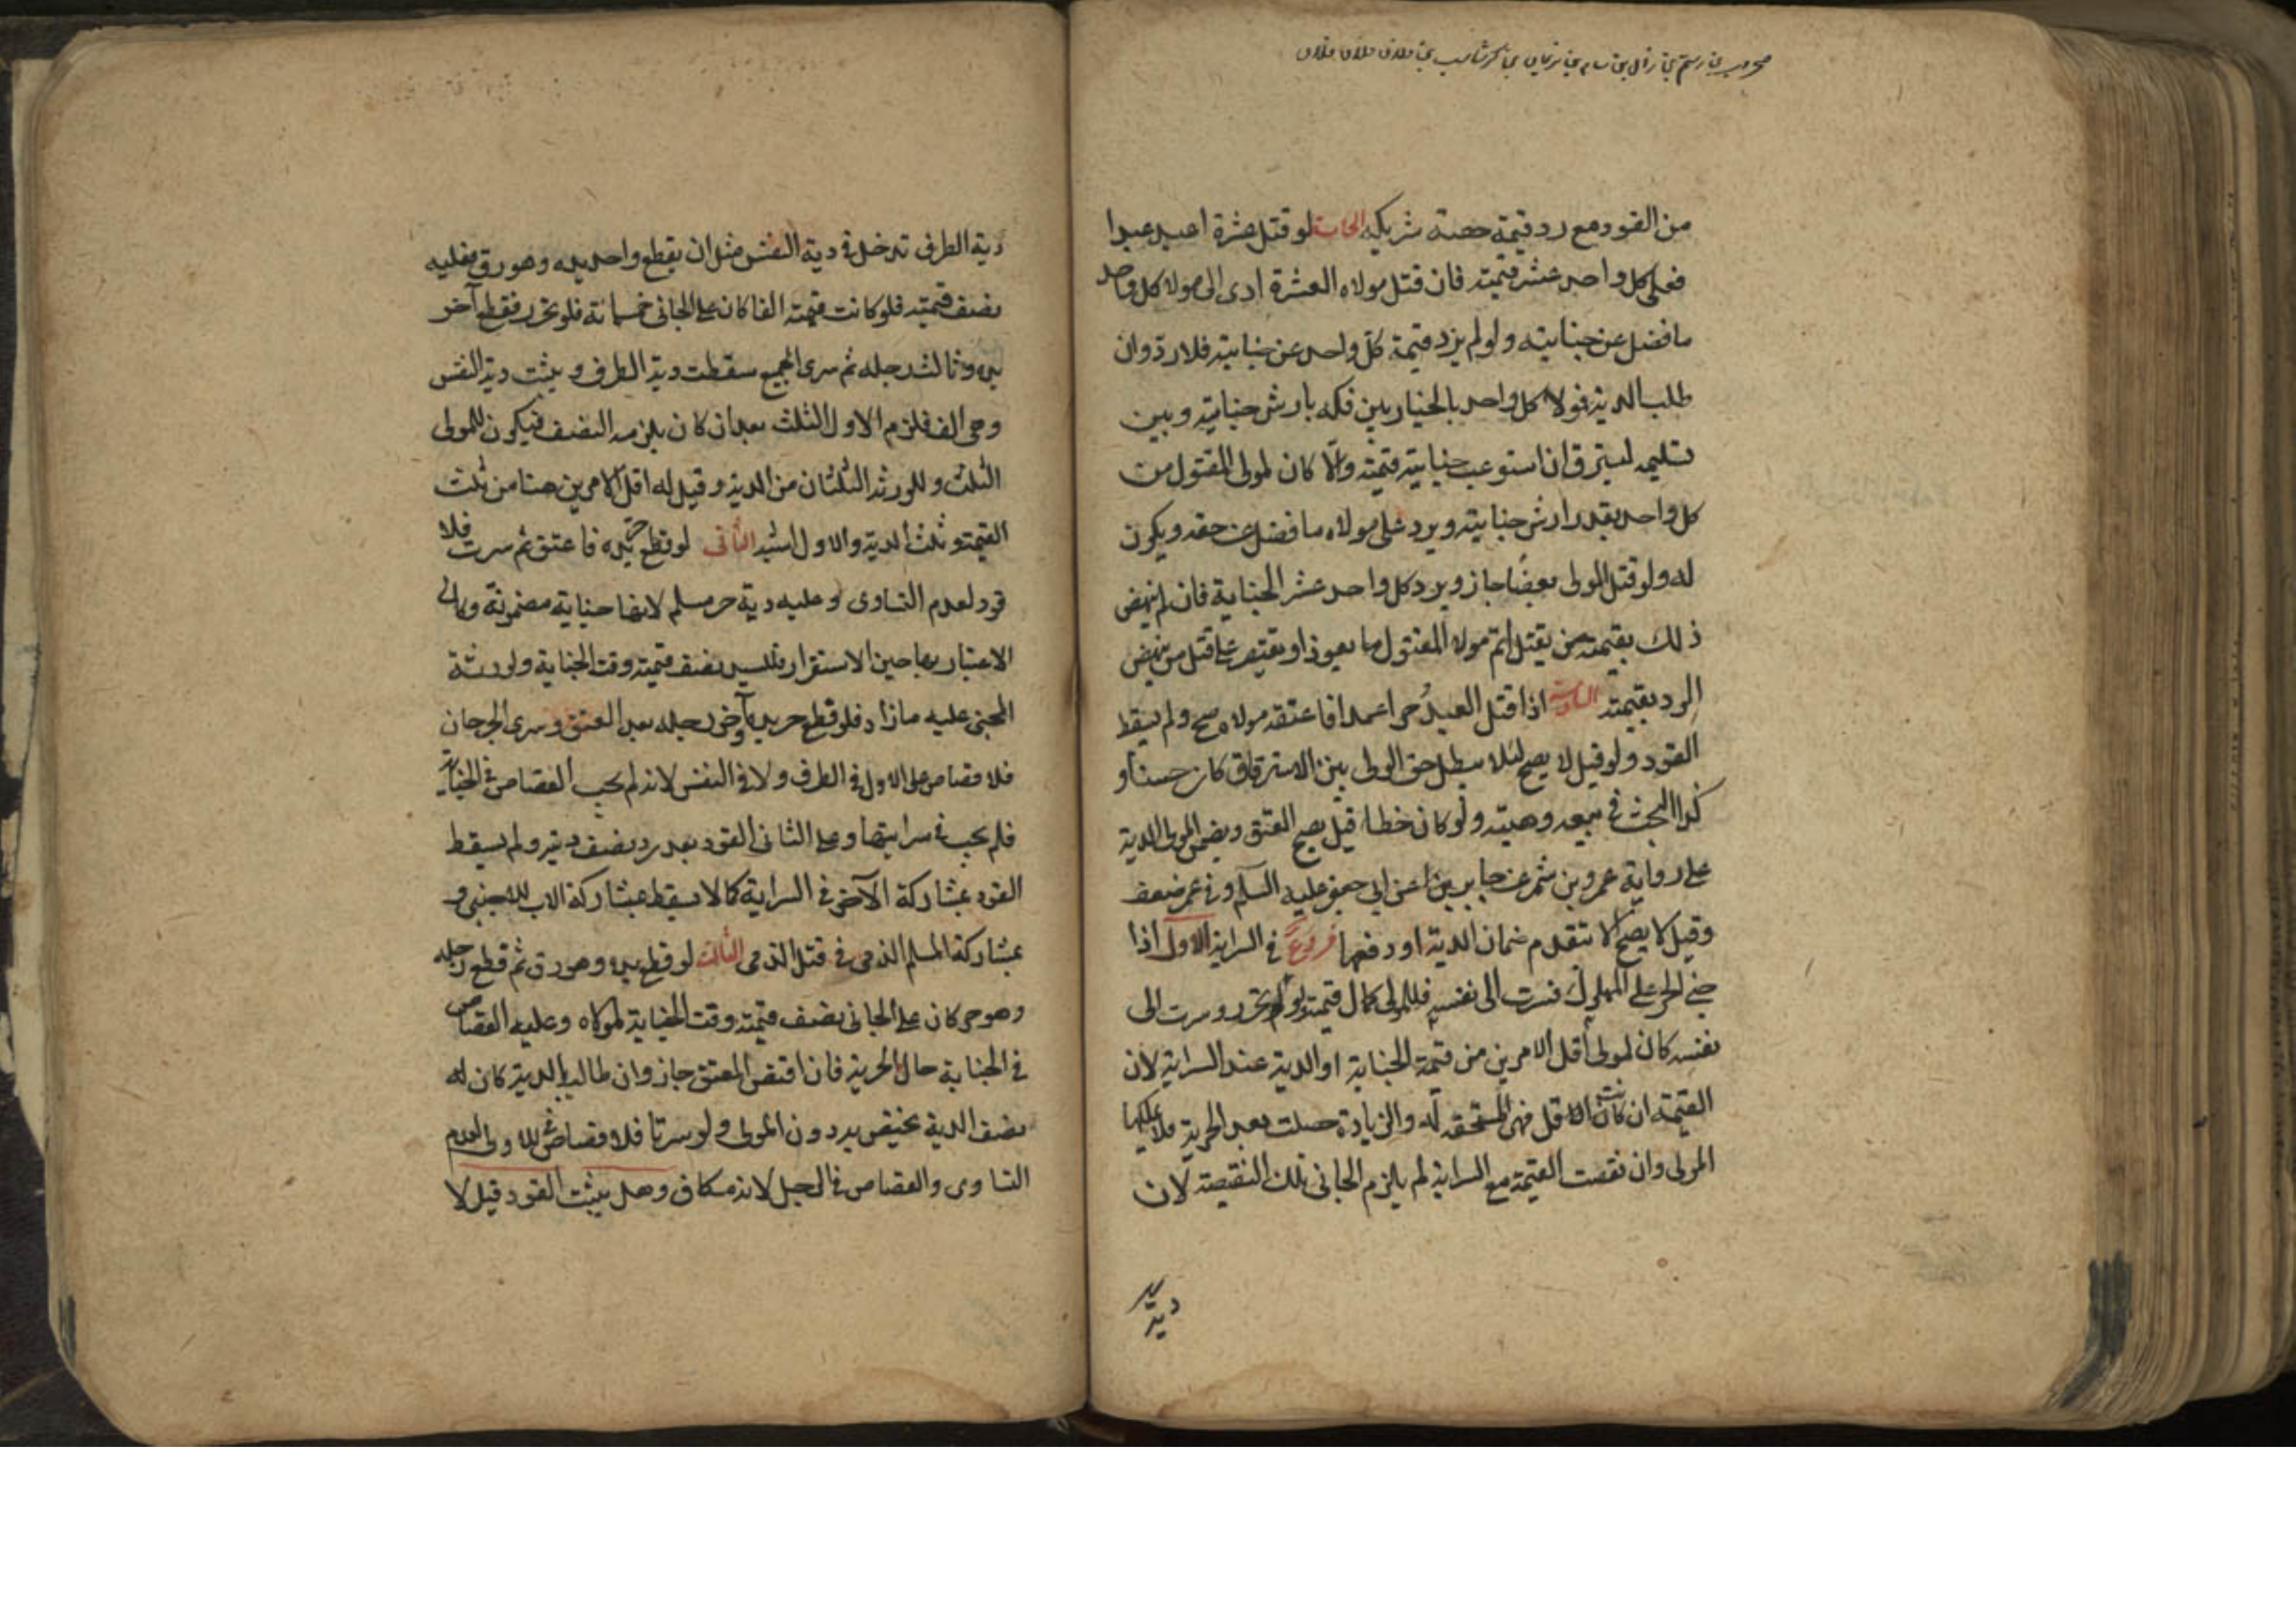 من القود مع رد قيمة حصة شريكه الخامسة لو قتل عشرة اعبد عبدا
فعلى كل واحد عشر قيمته فان قتل مولاه العشرة ادى الى مولا كل واحد
ما فضل عن جنايته ولو لم يزد قيمة كل واحد عن جنايته فلا رد وان
طلب الدية فمولا كل واحد بالخيار بين فكه بارش جنايته وبين
تسليمه ليسترق ان استوعب جنايته قيمته والا كان لمولى المقتول من
كل واحد بقدر ارش جنايته ويرد على مولاه ما فضل عن حقه ويكون
له ولو قتل المولى بعضا جاز ويرد كل واحد عشر الجناية فان لم ينهض
ذلك بقيمة من يقتل اتم مولا المقتول ما يعوز او يقتصر على قتل من ينهض
الرد بقيمته السادسة اذا قتل العبد حرا عمدا فاعتقه مولاه صح ولم يسقط
القود ولو قيل لا يصح لئلا يبطل حق الولى من الاسترقاق كان حسنا و
كذا البحث في بيعه وهبته ولو كان خطا قيل يصح العتق ويضمن المولى الدية
على رواية عمرو بن شمر عن جابر عن ابي جعفر عليه السلم وفي عمرو ضعف
وقيل لا يصح الا بتقدم ضمان الدية او دفعها فروع في السراية الاول اذا
جنى الحر على المملوك فسرت الى نفسه فللمولى كمال قيمته ولو تحرر وسرت الى
نفسه كان لمولى اقل الامرين من قيمة الجناية او الدية عند السراية لان
القيمة ان كانت الاقل فهي المستحقة له والزيادة حصلت بعد الحرية فلا يملكها
المولى وان نقصت القيمة مع السراية لم يلزم الجاني تلك النقيصة لان
دية
دية الطرف تدخل في دية النفس مثل ان يقطع واحد يده وهو رق فعليه
نصف قيمته فلو كانت قيمته الفا كان على الجاني خمسمائة فلو تحرر فقطع آخر
يده وثالث رجله ثم سرى الجميع سقطت دية الطرف ويثبت دية النفس
وهي الف فلزم الاول الثلث بعد ان كان يلزمه النصف فيكون للمولى
الثلث وللورثة الثلثان من الدية وقيل له اقل الامرين هنا من ثلث
القيمة وثلث الدية والاول اشبه الثانى لو قطع حر يده فاعتق ثم سرت فلا
قود لعدم التساوى وعليه دية حر مسلم لانها جناية مضمونة وكان
الاعتبار بها حين الاستقرار وللسيد نصف قيمته وقت الجناية ولورثة
المجنى عليه ما زاد فلو قطع حر يده وآخر رجله بعد العتق وسرى الجرحان
فلا قصاص على الاول في الطرف ولا في النفس لانه لم يجب القصاص في الجناية
فلم يجب في سرايتها وعلى الثانى القود بعد رد نصف ديته ولم يسقط
القود بمشاركة الآخر في السراية كما لا يسقط بمشاركة الاب للاجنبي و
بمشاركة المسلم الذمى في قتل الذمى الثالث لو قطع يده وهو رق ثم قطع رجله
وهو حر كان على الجانى نصف قيمته وقت الجناية لمولاه وعليه القصاص
في الجناية حال الحرية فان اقتص المعتق جاز وان طالب بالدية كان له
نصف الدية يختص به دون المولى ولو سرتا فلا قصاص في الاولى لعدم
التساوى والقصاص في الرجل لانه مكاف وهل يثبت القود قيل لا